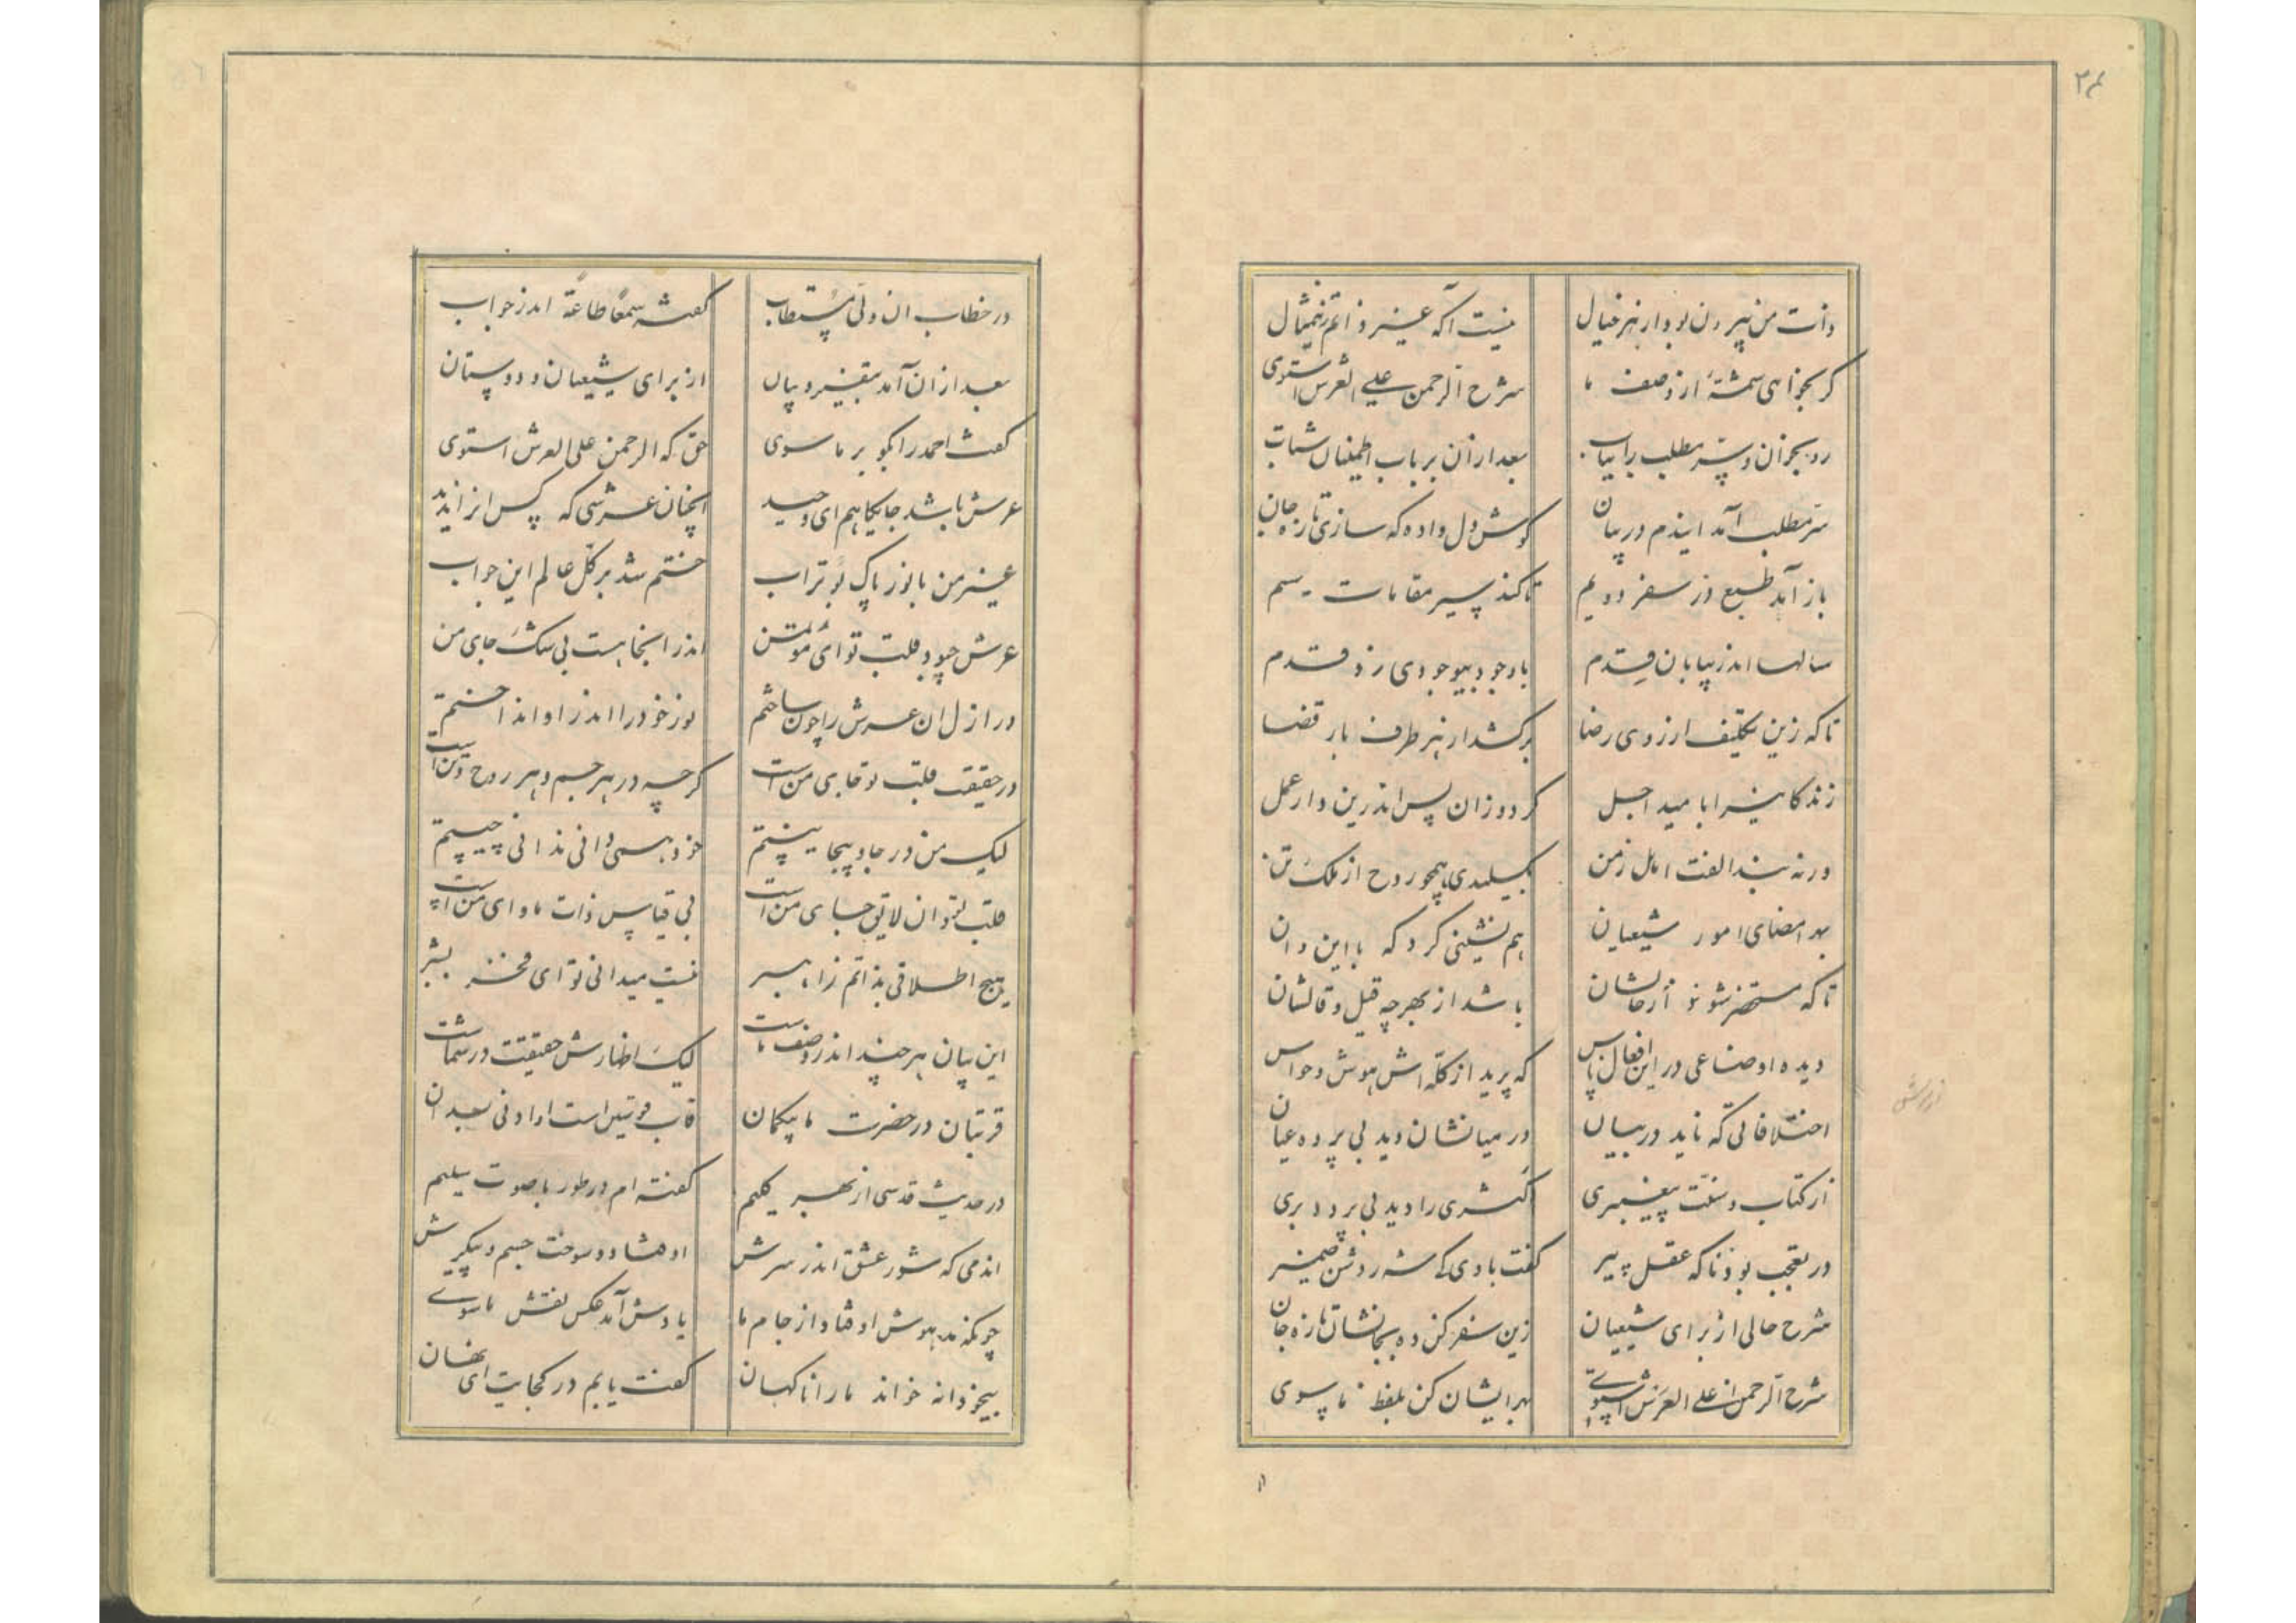 ۲۴
ذات من بیرون بود از هر خیال نیست آگه غیر ذاتم زین مثال
گر بخواهی شمهٔ از وصف ما شرح الرحمن علی العرش استوی
رو بخوان و سر مطلب را بیاب بعد ازآن بر باب اطمینان شتاب
سر مطلب آمد ایندم در بیان گوش دل واده که سازی تازه جان
باز آمد طبع در سفر دویم تا کند سیر مقامات سیم
سالها اندر بیابان قدم باوجود بیوجودی زد قدم
تا که زین تکلیف از روی رضا برکشد از هر طرف بار قضا
زندگانی را با مید اجل کردوزان پس اندرین دار عمل
ورنه بند الفت اهل زمن بگسلیدی همچو روح از ملک تن
بهر امضای امور شیعیان هم نشینی کرد که با این و آن
تا که مستحضر شود از حالشان باشد از بهر چه قیل و قالشان
دیده اوضاعی در این افعال ناس که پرید از کله اش هوش و حواس
اختلافاتی که ناید در بیان در میانشان دید بی پرده عیان
از کتاب و سنت پیغمبری اکثری را دید بی پرده بری
در تعجب بود ناکه عقل پیر گفت با وی کے شه روشن ضمیر
شرح حالی از برای شیعیان زین سفر کن ده بجانشان تازه جان
شرح الرحمن از علی العرش استوے بهر ایشان کن بلفظ ماسوی
در خطاب ان ولی مستطاب گفت سمعا طاعة اندر جواب
بعد از ان آمد بتفسیر و بیان از برای شیعیان و دوستان
گفت احمد را بگو بر ماسوی حق که الرحمن علی العرش استوی
عرش باشد جایگاهم ای وحید انچنان عرشی که پس از اندید
غیر من با نور پاک بوتراب ختم شد بر کل عالم این جواب
عرش چبود قلب تو ای مؤتمن اندر انجا هست بی شک جای من
در ازل ان عرش را چون ساختم نور خود را اندر او انداختم
در حقیقت قلب تو جای من است گرچه در هر جسم و هر روح و تن است
لیک من در جا و بیجا نیستم خود همی دانی ندانی چیستم
قلب تو ان لایق جای من است بی قیاس ذات ماوای من است
هیچ اطلاقی بذاتم زا هیسر نیست میدانی تو ای فخر بشر
این بیان هر چند اندر وصف ماست لیک اظهارش حقیقت در شماست
قربتان در حضرت ما بیکمان قاب قوسین است او ادنی بعد ان
در حدیث قدسی از بهر کلیم گفته ام در طور با صوت سلیم
اندمی که شور عشق اندر سرش اوفتاد و سوخت جسم و پیکرش
چونکه مدهوش اوفتاد از جام ما یادش آمد عکس نقش ماسوے
بیخودانه خواند ما را ناگهان گفت یابم در کجایت ای نهان